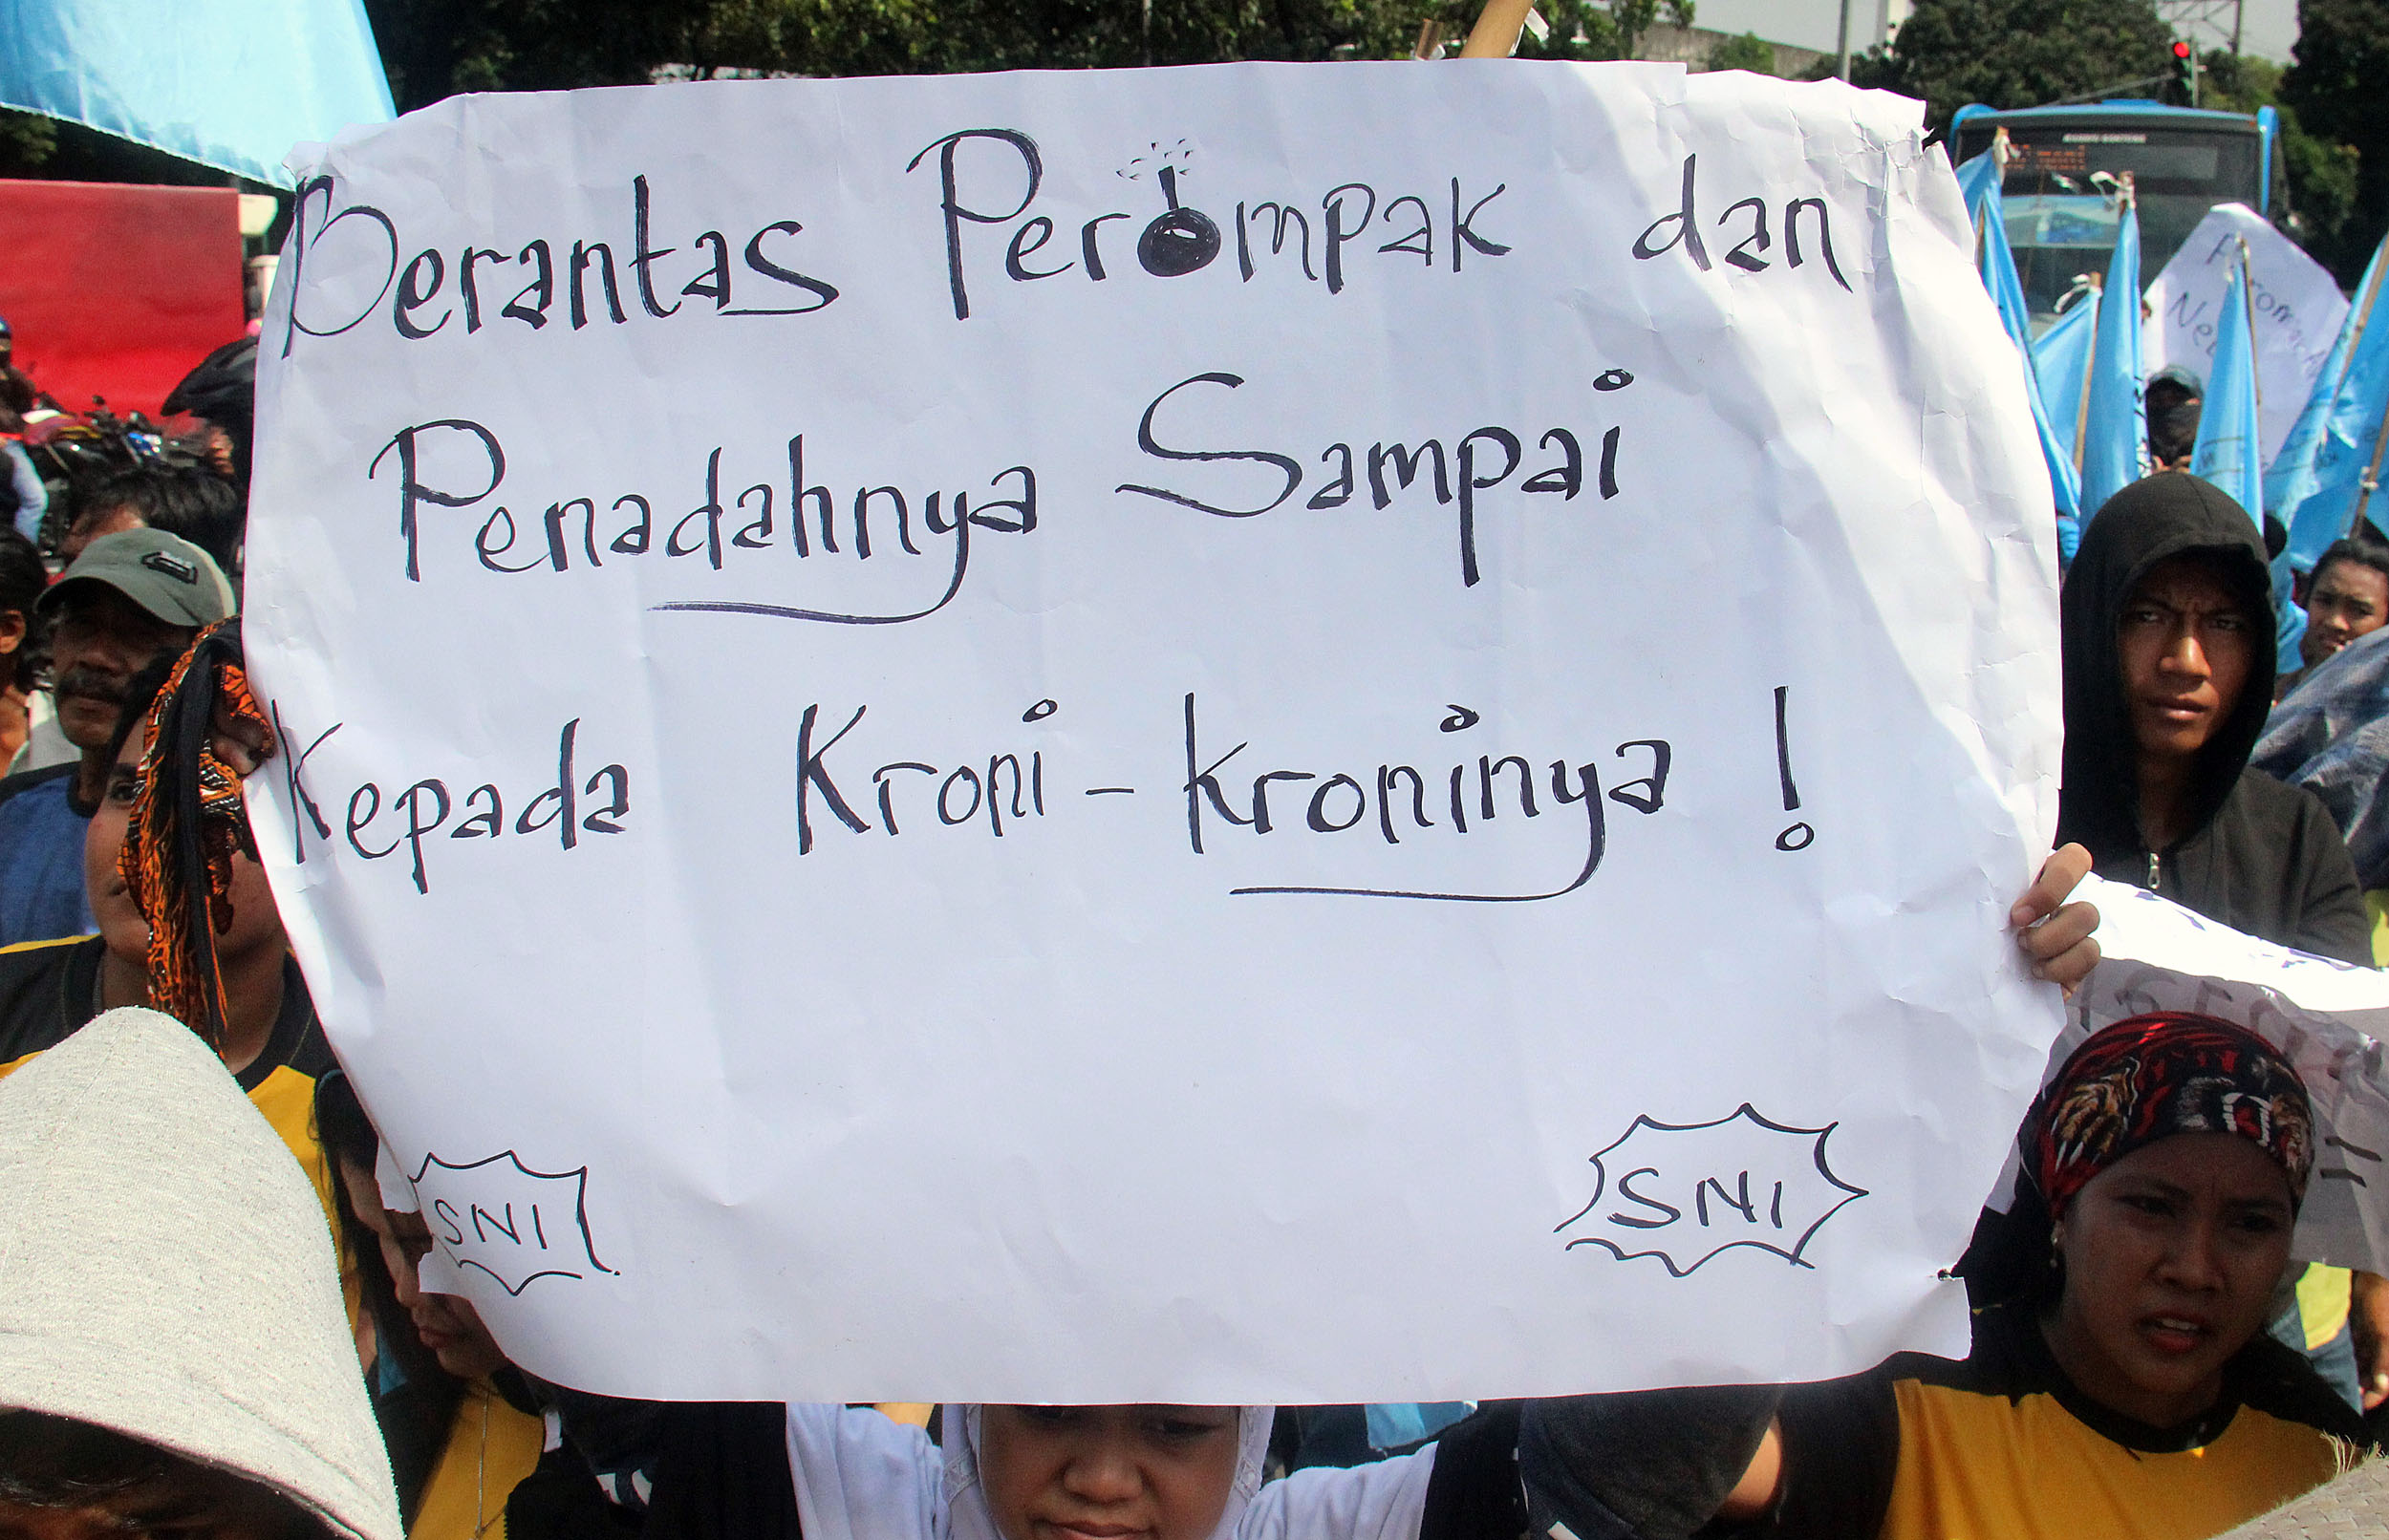 Berantas Perompak dan
Penadahnya Sampai
Kepada Kroni-kroninya !
SNI
SNI